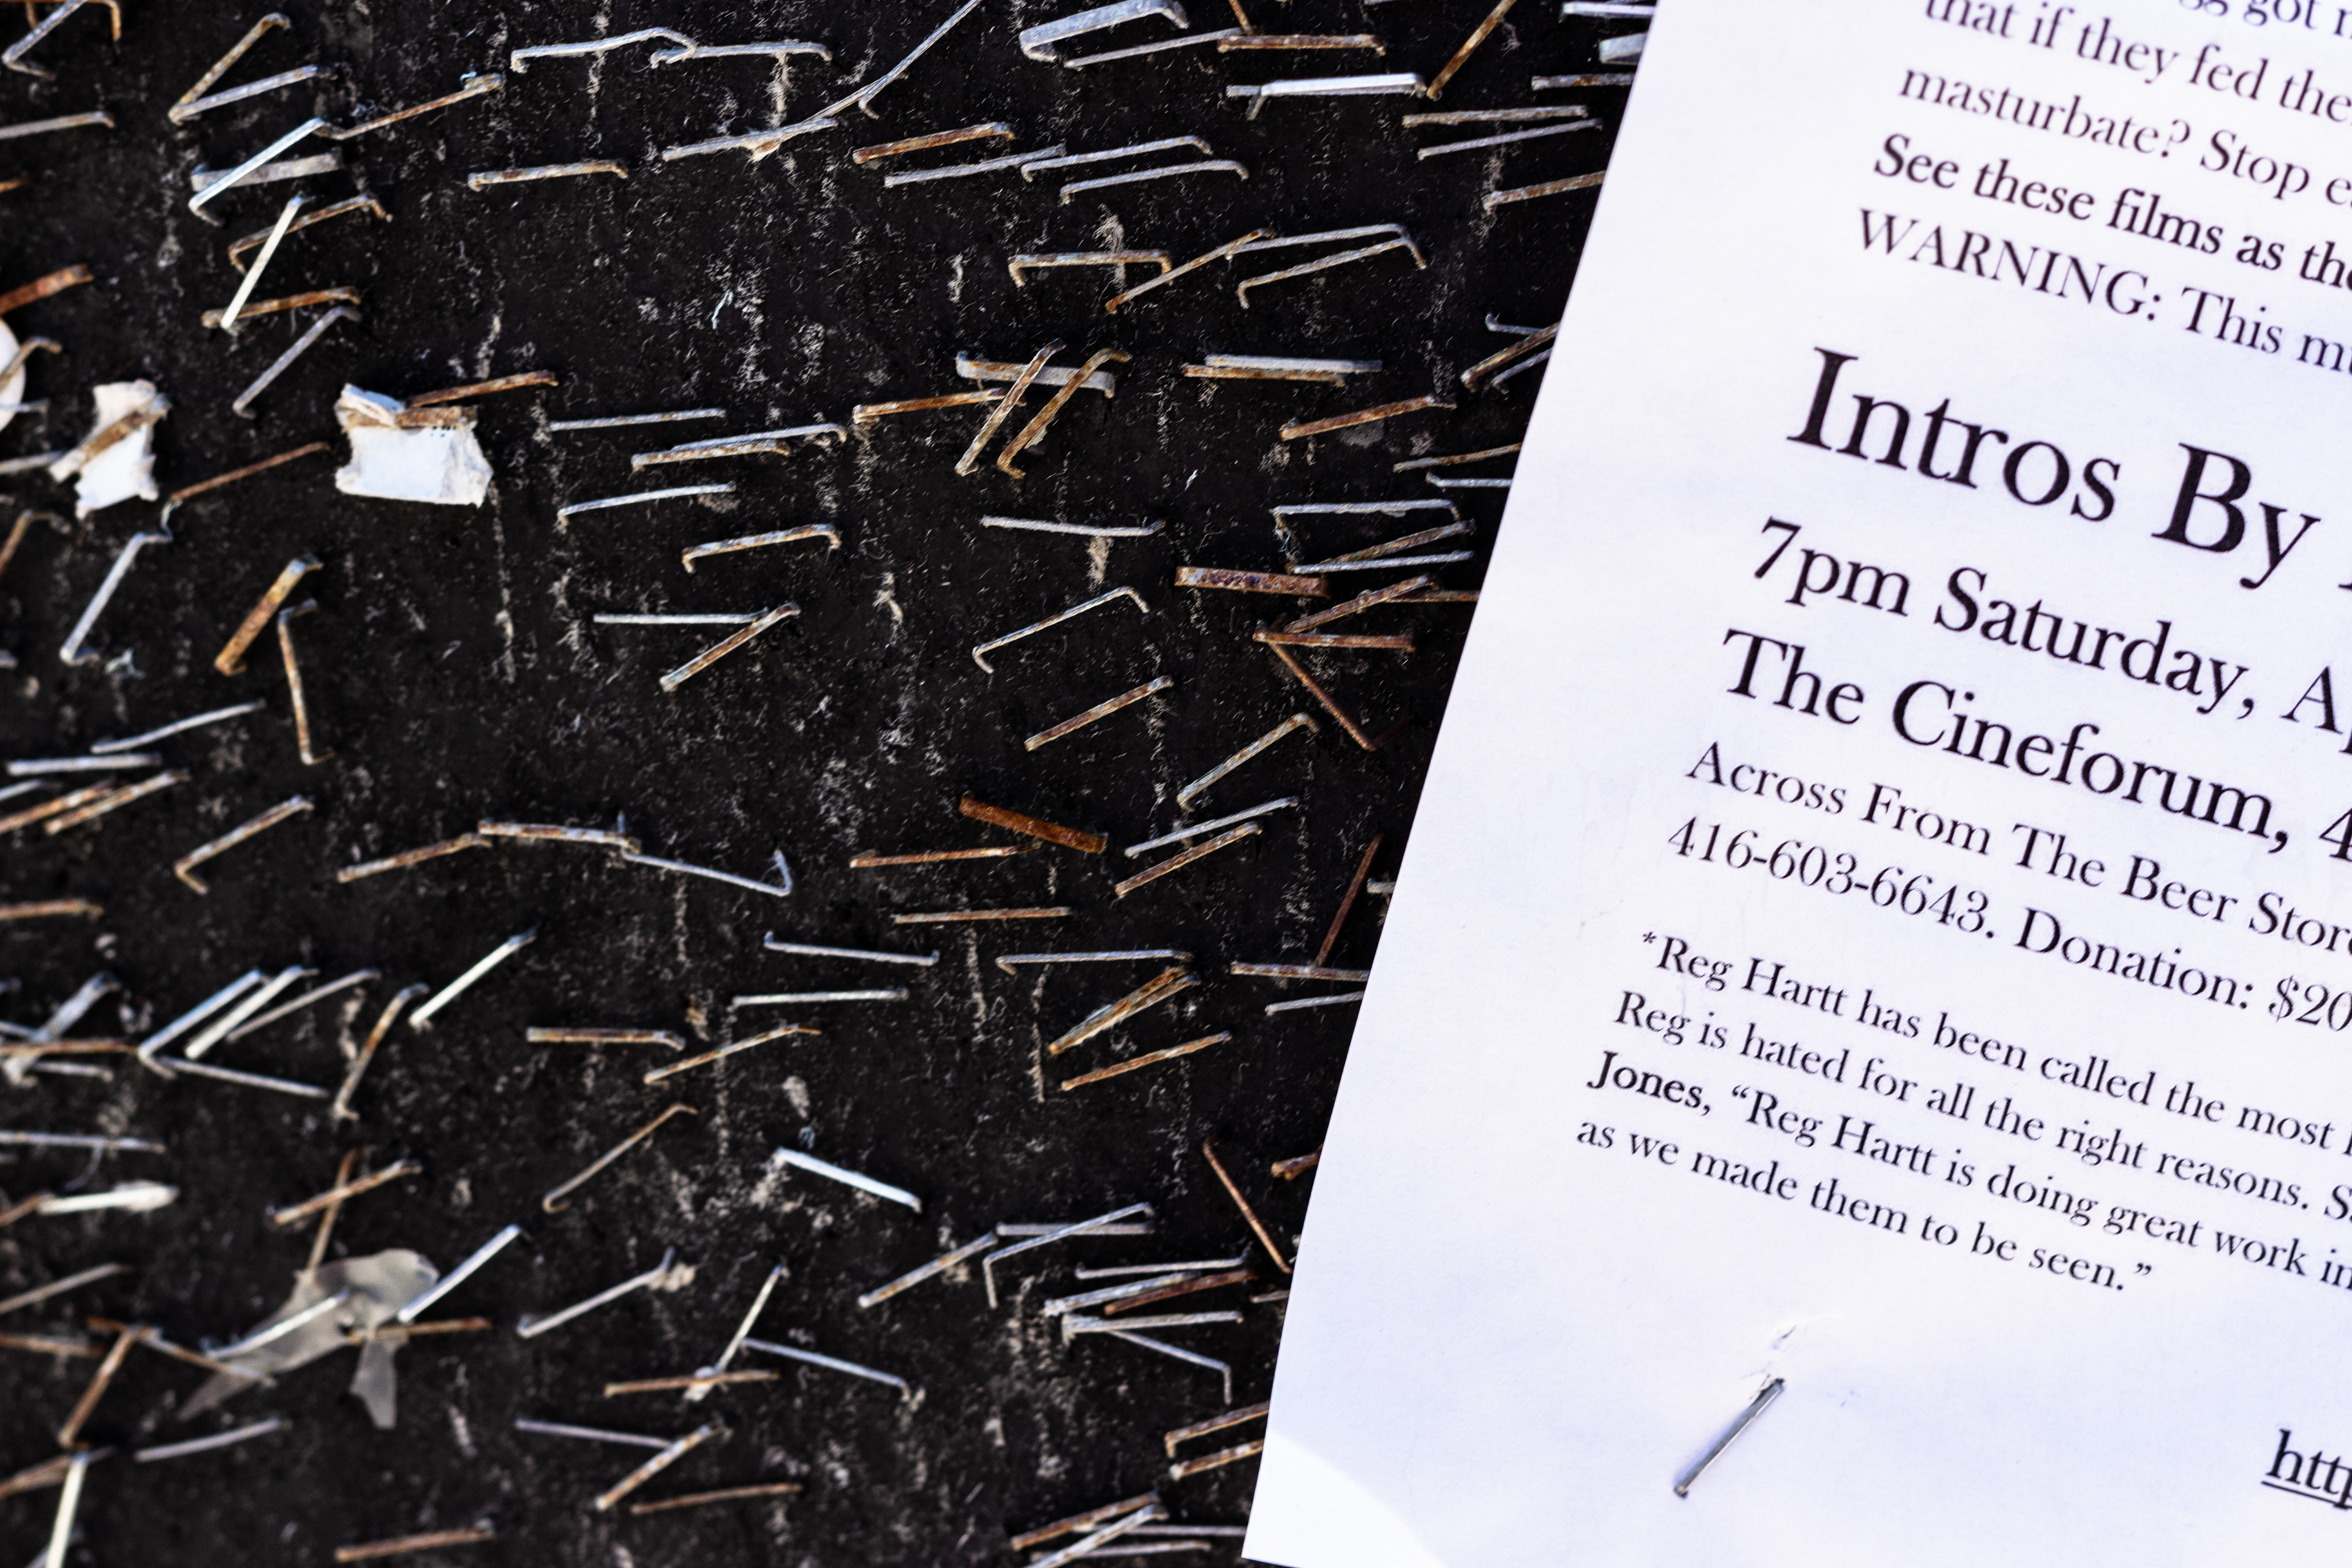 got
that if they fed the
masturbate? Stop
See these films as
WARNING: This
Intros By
7pm Saturday,
The Cineforum, 4
Across From The Beer Store
416-603-6643. Donation: $20
*Reg Hartt has been called the most
Reg is hated for all the right reasons.
Jones, “Reg Hartt is doing great work in
as we made them to be seen.”
http